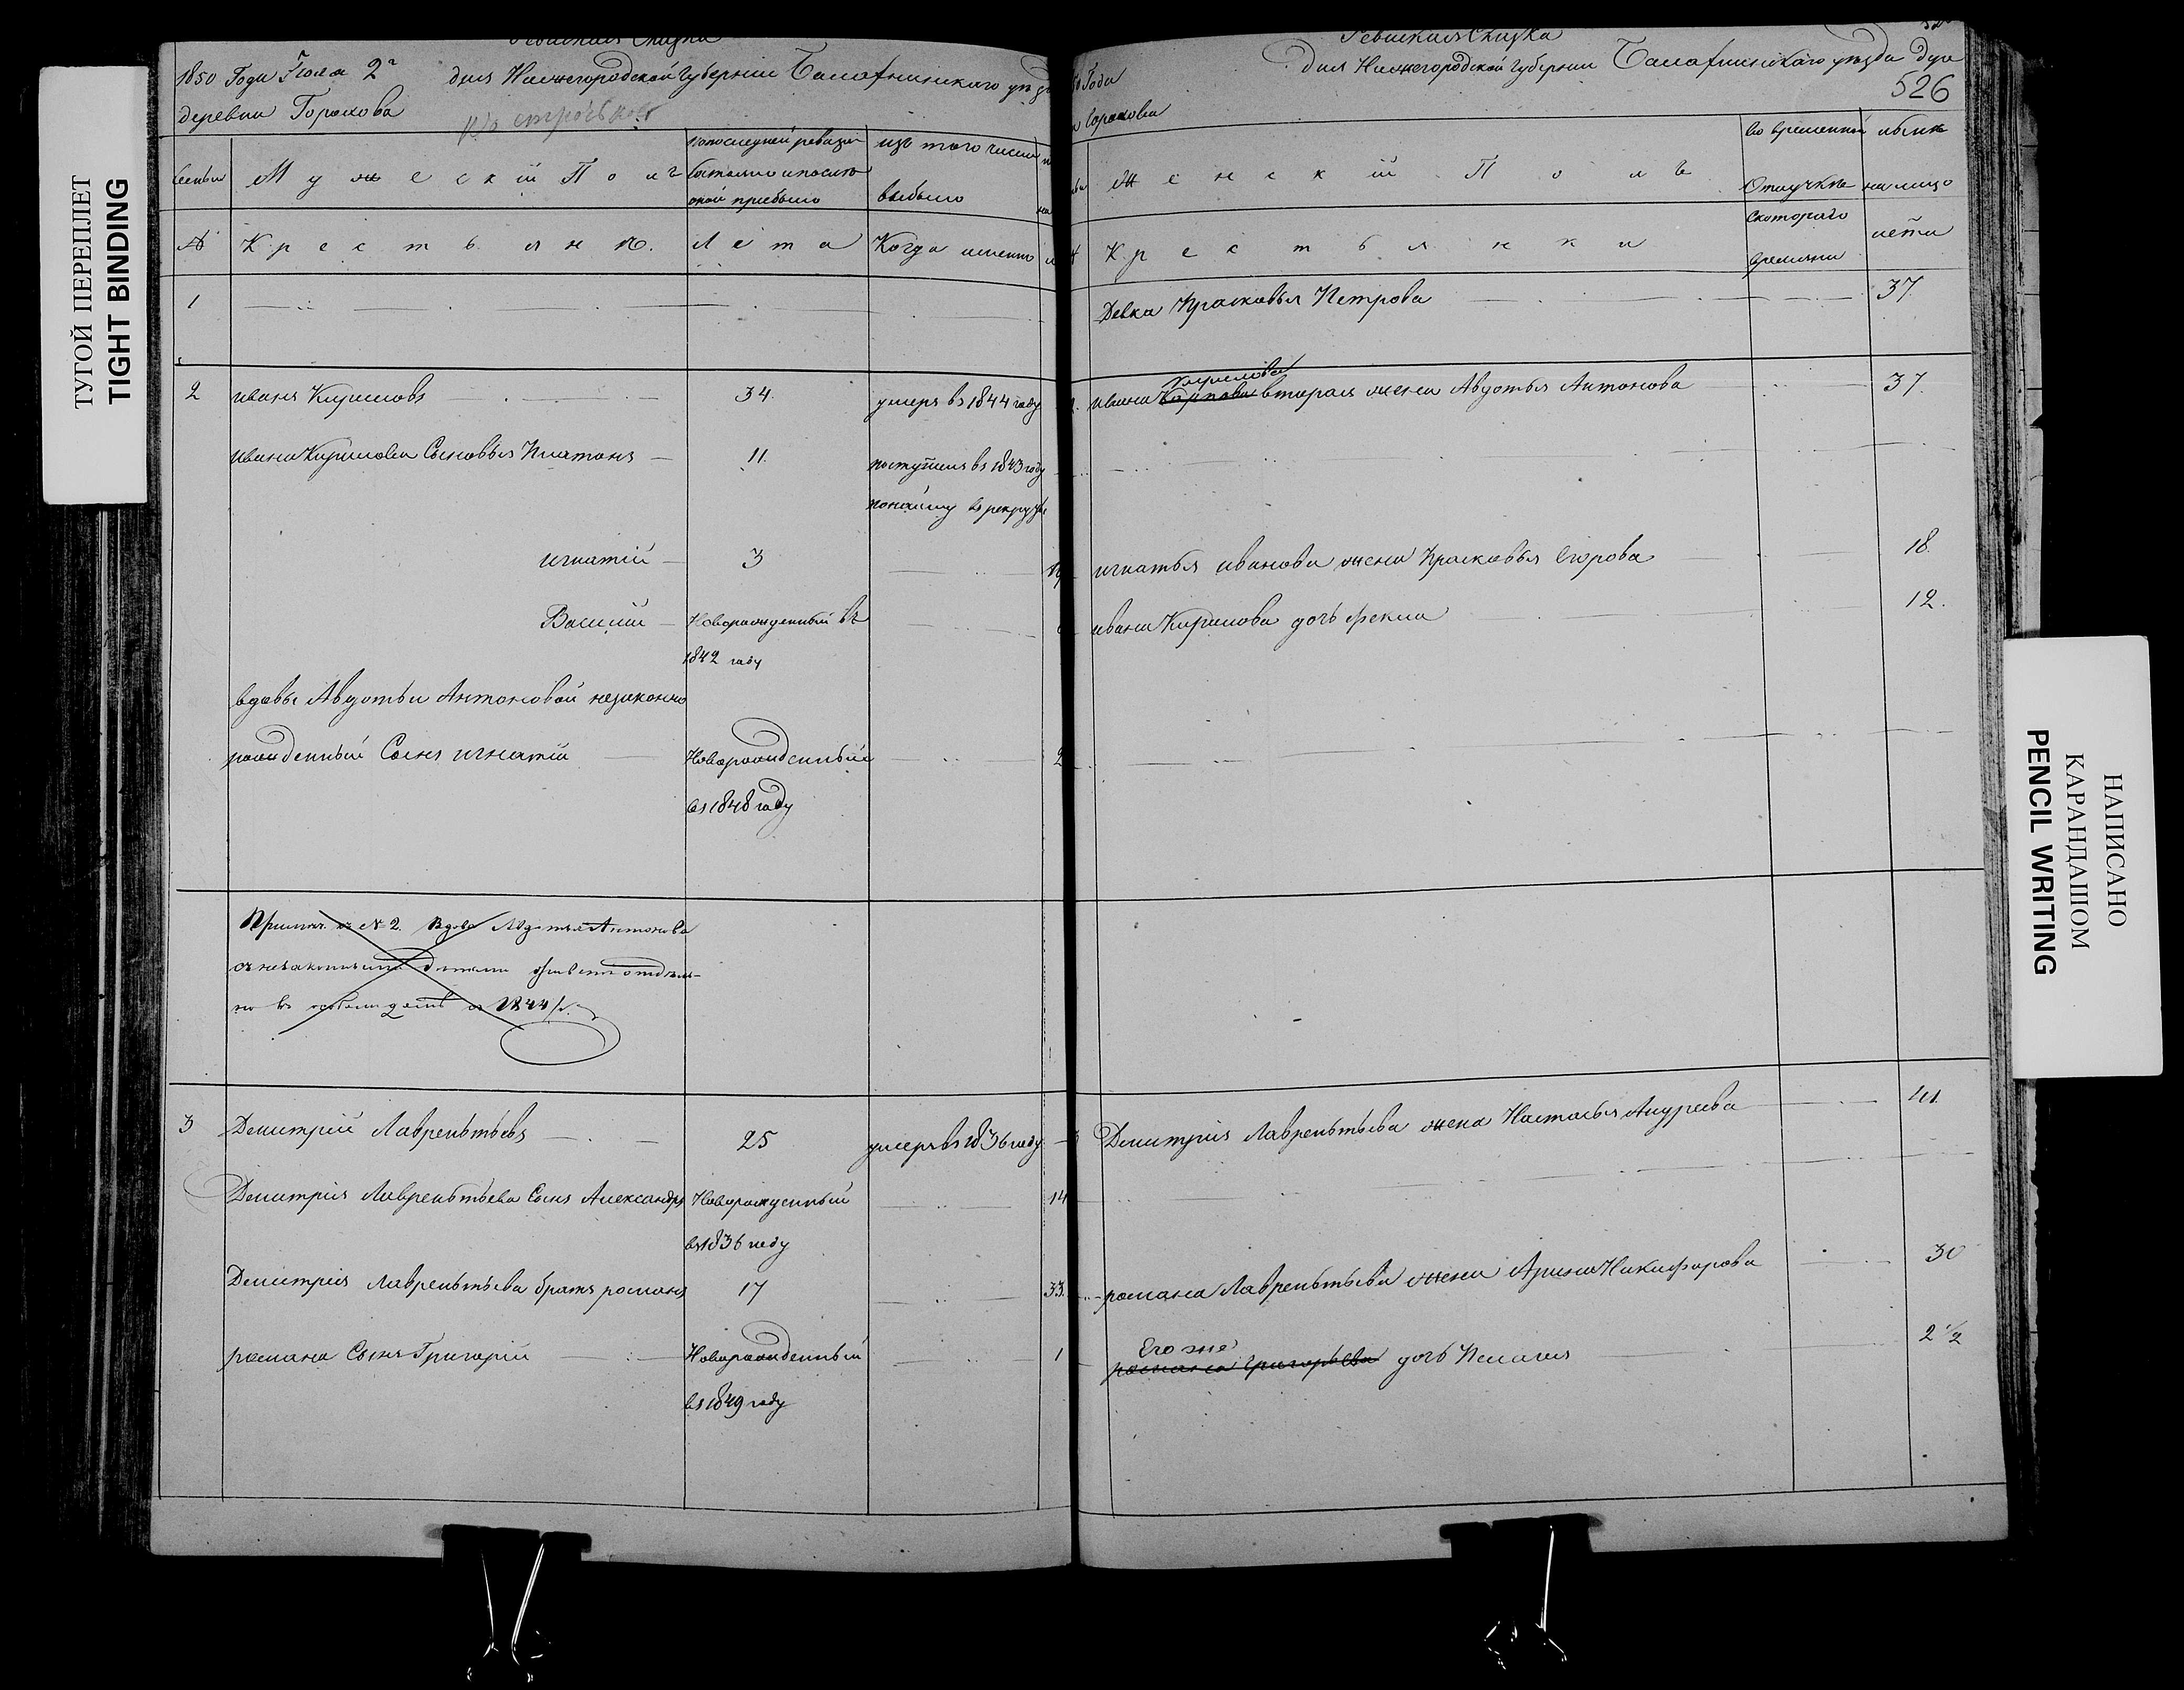 ТУГОЙ ПЕРЕПЛЕТ
TIGHT BINDING
Ревизская Сказка
1850 Года Июля 2 дня Нижегородской Губернии Балахнинского уезд
деревни Горохова
семьи
Мужеский Полъ
по последней ревизии
состояло и после
оной прибыло
изъ того числа
выбыло
№
Крестьяне.
Лета
Когда именно
1
2 иванъ Кириловъ 34. умеръ въ 1844 году
ивана Кирилова Сыновья Платонъ 11. поступилъ въ 1843 году
по найму въ рекруты
игнатій 3
Василій Новорожденный въ
1842 году
вдовы Авдотьи Антоновой незаконно
рожденный Сынъ игнатій Новорожденный 2
въ 1848 году
Примеч. къ № 2. Вдова Авдотья Антонова
съ незаконными детьми живетъ отдель-
но въ 1844
3 Дмитрий Лаврентьевъ 25 умеръ въ 1836 году
Дмитрия Лаврентьева Сынъ Александръ Новорожденный 14
въ 1836 году
Дмитрия Лаврентьева братъ романъ 17 33.
романа Сынъ Григорій Новорожденный 1
въ 1849 году
Ревиская Сказка
50 Года дня Нижегородской Губернии Балахнинского уезда дер
526
и Горохова
Женскій Полъ
во временной
Отлучке
ныне
на лицо
Крестьянки
с котораго
времяни
лета
Девка Прасковья Петрова 37.
Кирилова
ивана Карпова вторая жена Авдотья Антонова 37.
игнатья иванова жена Прасковья Егорова 18.
ивана Кирилова дочь Фекла 12.
Дмитрия Лаврентьева жена Настасья Андреева 41.
романа Лаврентьева жена Арина Никифорова 30
Его же
романа Григорьева дочь Пелагея 2 1/2
НАПИСАНО
КАРАНДАШОМ
PENCIL WRITING